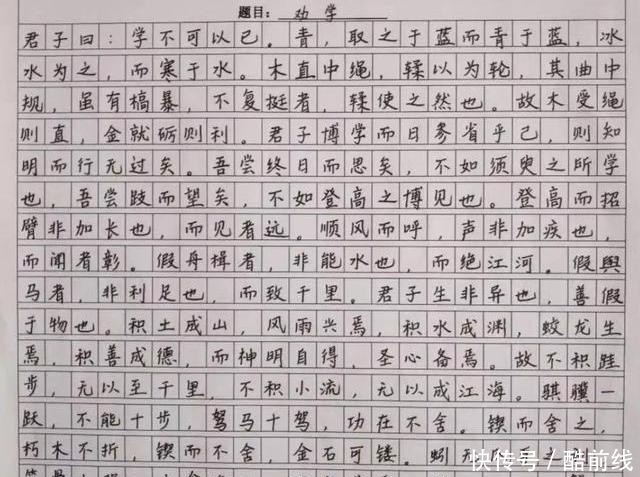 题目：劝学
君子曰：学不可以已。青，取之于蓝而青于蓝，冰
水为之，而寒于水。木直中绳，輮以为轮，其曲中
规，虽有槁暴，不复挺者，輮使之然也。故木受绳
则直，金就砺则利。君子博学而日参省乎己，则知
明而行无过矣。吾尝终日而思矣，不如须臾之所学
也，吾尝跂而望矣，不如登高之博见也。登高而招
臂非加长也，而见者远。顺风而呼，声非加疾也，
而闻者彰。假舟楫者，非能水也，而绝江河。假舆
马者，非利足也，而致千里。君子生非异也，善假
于物也。积土成山，风雨兴焉，积水成渊，蛟龙生
焉，积善成德，而神明自得，圣心备焉。故不积跬
步，无以至千里，不积小流，无以成江海。骐骥一
跃，不能十步，驽马十驾，功在不舍。锲而舍之，
朽木不折，锲而不舍，金石可镂。蚓无
快传号／酷前线